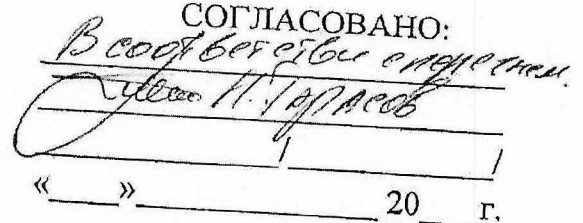 СОГЛАСОВАНО:
В соответствии с перечнем.
Н. ТАРАСОВ
/ /
«___»____________ 20__ г.